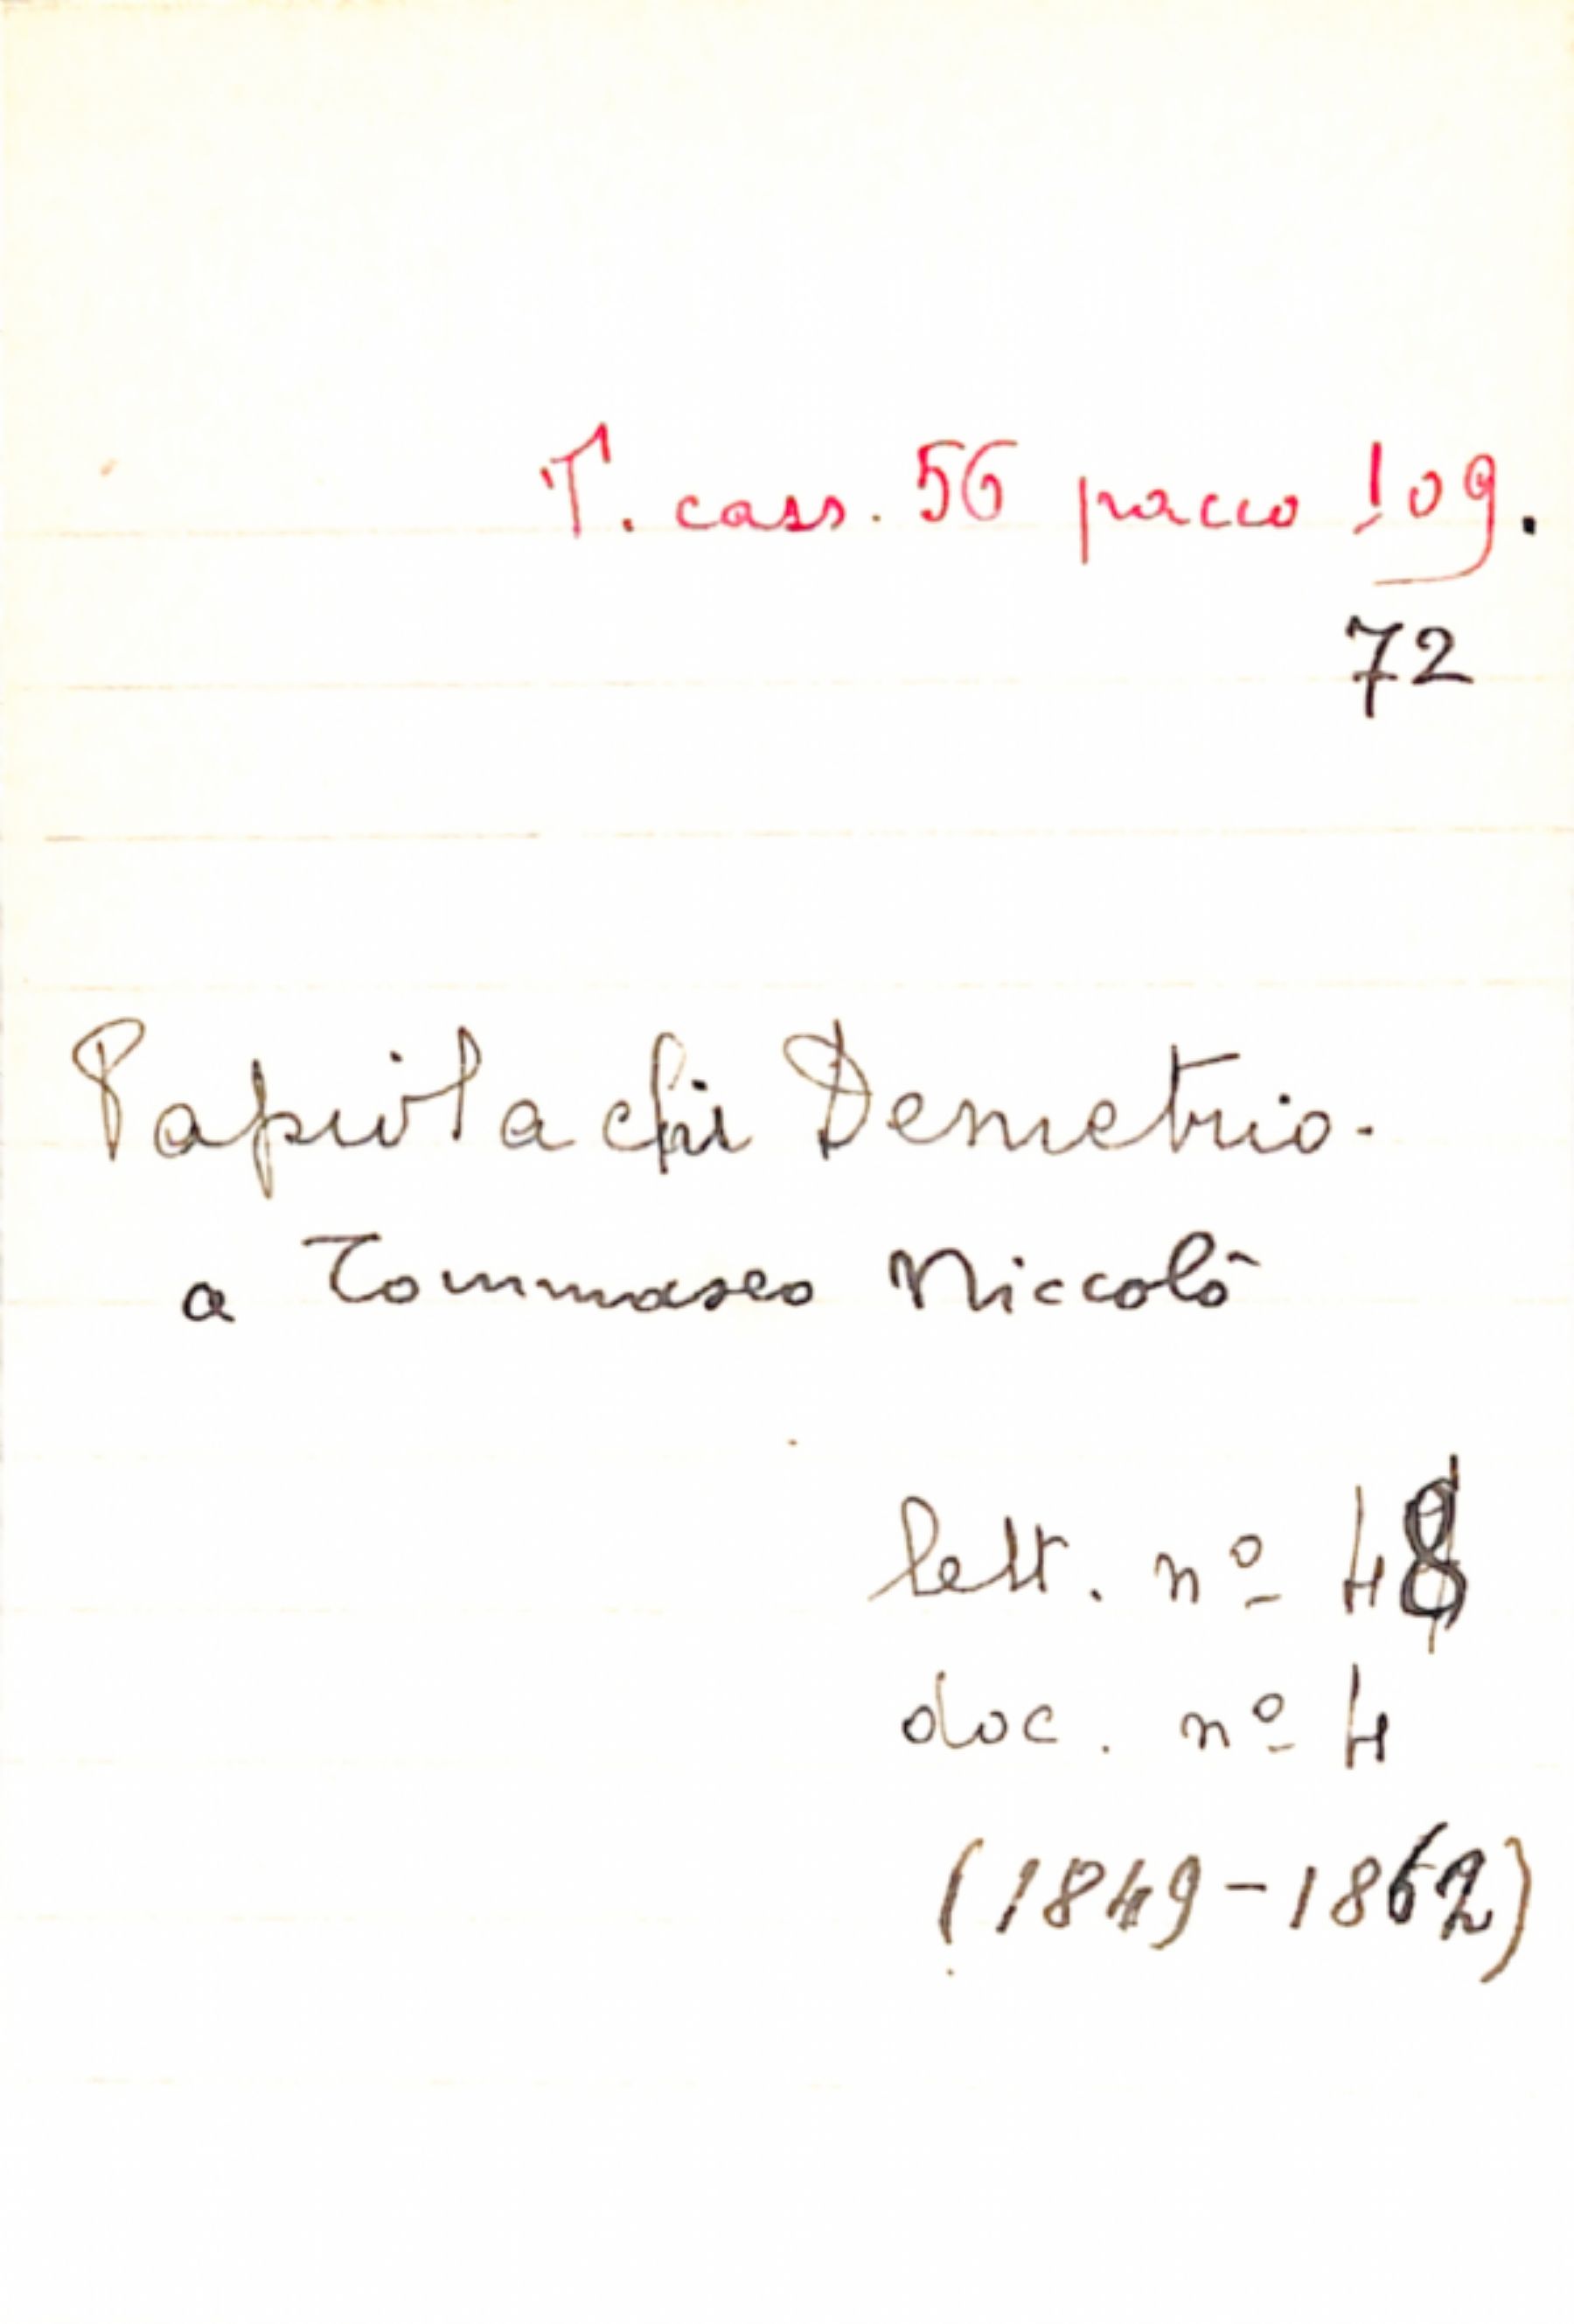 T. cass. 56 pacco 109.
72
Papiolachi Demetrio.
a Tommaseo Niccolò
lett. nº 48
doc. nº 4
(1849-1862)